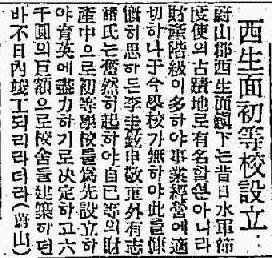 西生面初等校設立
蔚山郡西生面鎭下는昔日水軍節
度使의古蹟地로有名할뿐아니라
財產階級이多하야事業經營에適
切하나于今學校가無하야此를慷
慨히思하든李 敬重外有志
諸氏는奮然히起하야自己等의財
產中으로初等學校를爲先設立하
야育英에盡力하기로決定하고六
千圓의巨額으로校舍를建築하던
바不日內竣工되리라더라(蔚山)